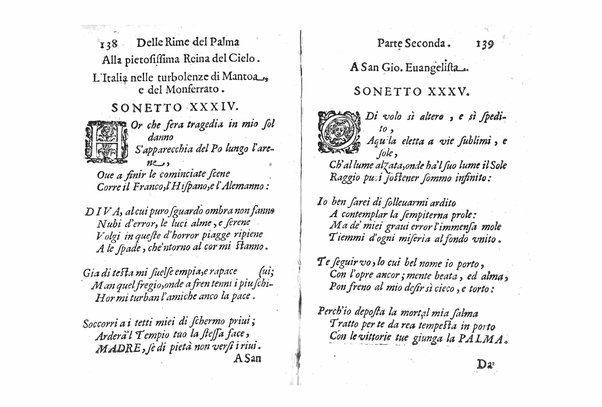 138 Delle Rime del Palma
Alla pietosissima Reina del Cielo.
L'Italia nelle turbolenze di Mantoa,
e del Monferrato.
SONETTO XXXIV.
HOr che fera tragedia in mio sol
danno
S'apparecchia del Po lungo l'are-
ne,
Oue a finir le cominciate scene
Corre il Franco, l'Hispano, e l'Alemanno:
DIVA, al cui puro sguardo ombra non fanno
Nubi d'error, le luci alme, e serene
Volgi in queste d'horror piagge ripiene
A le spade, che'ntorno al cor mi stanno.
Gia di testa mi suelse empia, e rapace sui;
Man quel fregio, onde a fren tenni i piu schi-
Hor mi turban l'amiche anco la pace.
Soccorri a i tetti miei di schermo priui;
Arderà'l Tempio tuo la stessa face,
MADRE, se di pietà non versi i riui.
A San
Parte Seconda. 139
A San Gio. Euangelista.
SONETTO XXXV.
DI volo sì altero, e sì spedi-
to,
Aquila eletta a vie sublimi, e
sole,
Ch'al lume alzata, onde ha'l suo lume il Sole
Raggio puoi sostener sommo infinito:
Io ben sarei di solleuarmi ardito
A contemplar la sempiterna prole:
Ma de' miei graui error l'immensa mole
Tiemmi d'ogni miseria al fondo vnito.
Te seguir vo, lo cui bel nome io porto,
Con l'opre ancor; mente beata, ed alma,
Pon freno al mio desir sì cieco, e torto:
Perch'io deposta la mortal mia salma
Tratto per te da rea tempesta in porto
Con le vittorie tue giunga la PALMA.
Da